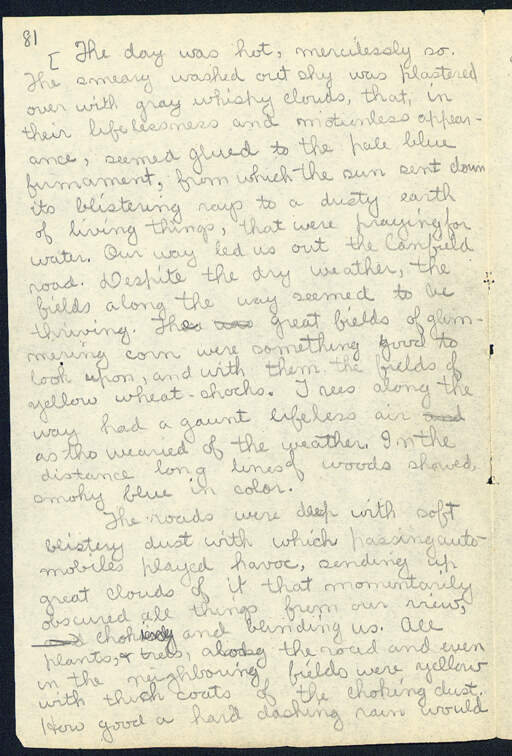 81
[ The day was hot, mercilessly so.
The smeary washed out sky was plastered
over with gray whishy clouds, that, in
their lifelessness and motionless appear-
ance, seemed glued to the pale blue
firmament, from which the sun sent down
its blistering rays to a dusty earth
of living things, that were praying for
water. Our way led us out the Canfield
road. Despite the dry weather, the
fields along the way seemed to be
thriving. The great fields of glim-
mering corn were something good to
look upon, and with them the fields of
yellow wheat-shocks. Trees along the
way had a gaunt lifeless air
as tho wearied of the weather. In the
distance long lines of woods showed,
smoky blue in color.
The roads were deep with soft
blistery dust with which passing auto-
mobiles played havoc, sending up
great clouds of it that momentarily
obscured all things from our view,
chokingly and blinding us. All
plants, & trees, along the road and even
in the neighbouring fields were yellow
with thick coats of the choking dust.
How good a hard dashing rain would